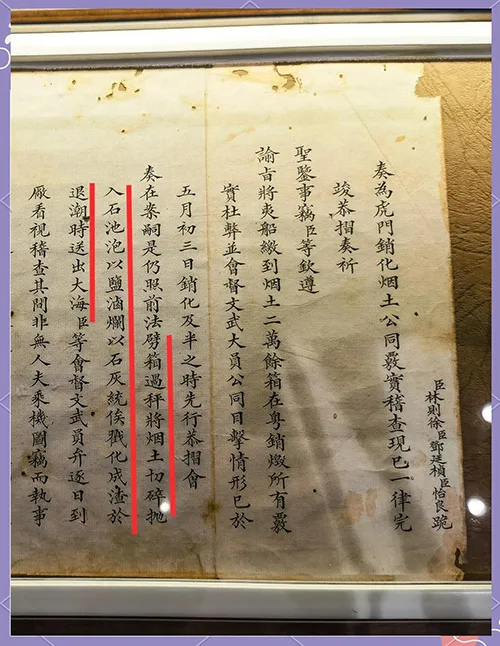 臣林則徐臣鄧廷楨臣怡良跪
奏為虎門銷化烟土公同覈實稽查現已一律完
竣恭摺奏祈
聖鑒事竊臣等欽遵
諭旨將夷船繳到烟土二萬餘箱在粵銷燬所有覈
實杜弊並會督文武大員公同目擊情形已於
五月初三日銷化及半之時先行恭摺會
奏在案嗣是仍照前法劈箱過秤將烟土切碎拋
入石池泡以鹽滷爛以石灰統俟戳化成渣於
退潮時送出大海臣等會督文武員弁逐日到
厰看視稽查其間非無人夫乘機圖竊而執事